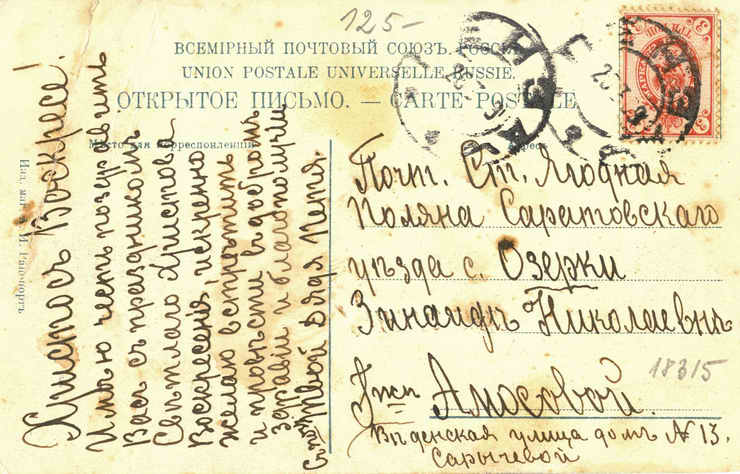 125-
ВСЕМІРНЫЙ ПОЧТОВЫЙ СОЮЗЪ. РОССІЯ.
UNION POSTALE UNIVERSELLE. RUSSIE.
ОТКРЫТОЕ ПИСЬМО. — CARTE POSTALE.
Мѣсто для корреспонденціи
Адресъ
Христосъ Воскресе!
Имѣю честь поздравить
Васъ съ праздникомъ
Свѣтлаго Христова
Воскресенія, искренно
желаю встрѣтить
и провѣсти въ добромъ
здравіи и благополучіи
Твой Дядя Петя.
Почт. Ст. Ягодная
Поляна Саратовскаго
уѣзда с. Озерки
Зинаидѣ Николаевнѣ
Гжѣ Амосовой.
улица домъ № 13.
Сарычевой
18315